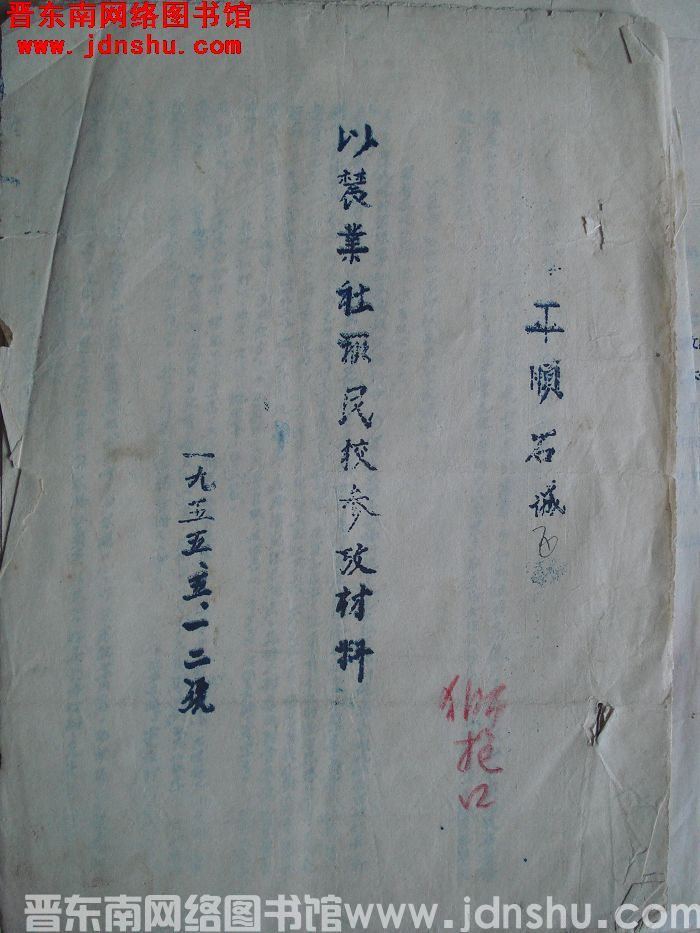 晋东南网络图书馆
www.jdnshu.com
平順石城
以農業社办民校参攷材料
一九五五、五、一二號
狮
口
晋东南网络图书馆www.jdnshu.com